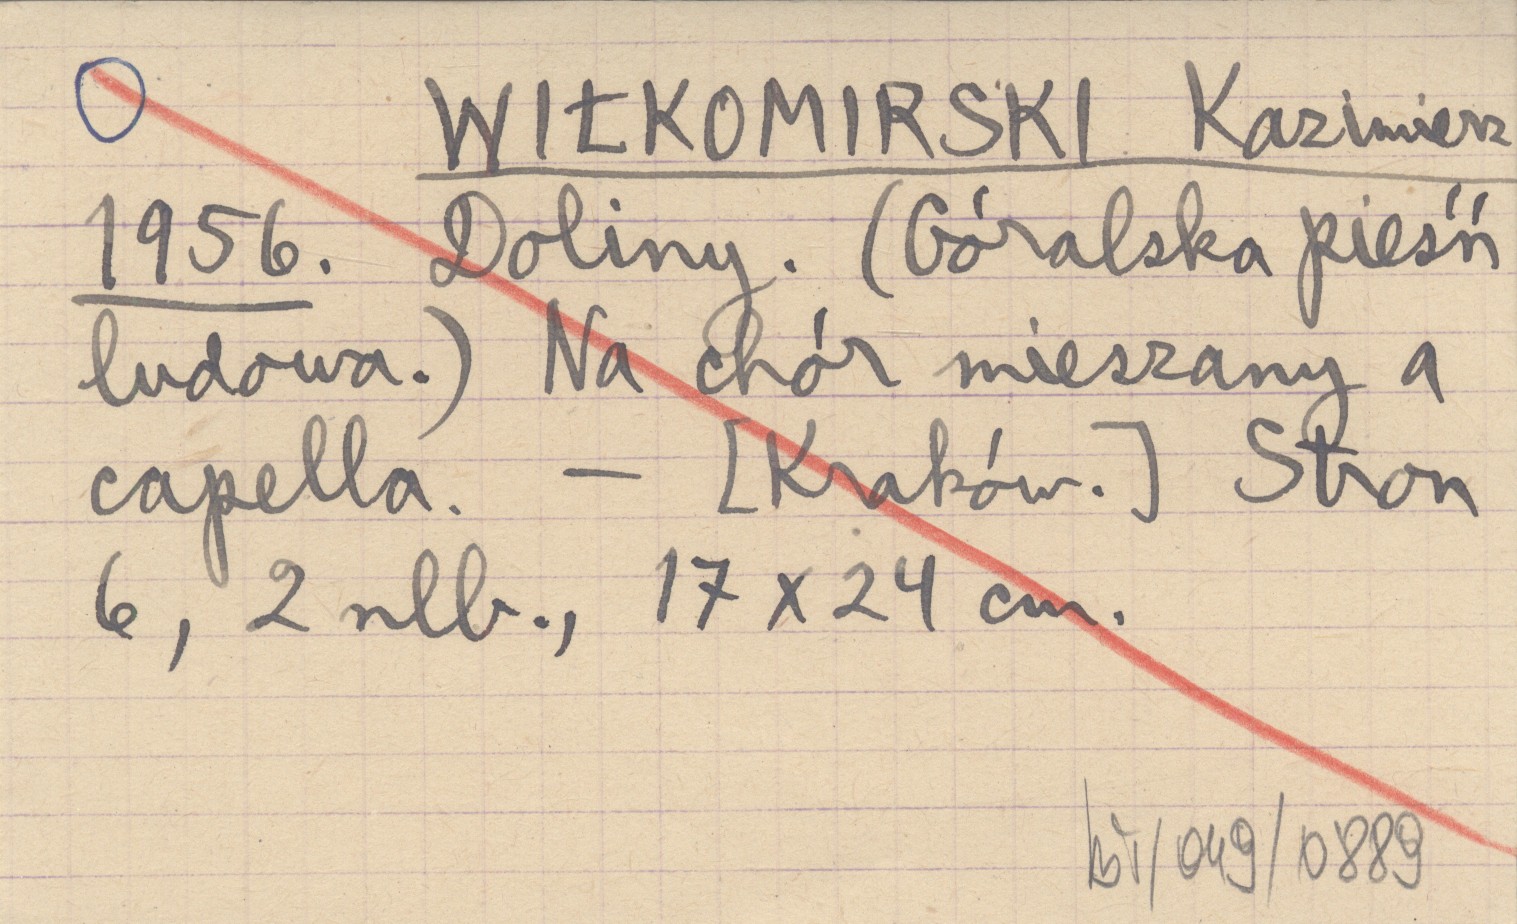 WIŁKOMIRSKI Kazimierz
1956. Doliny. (Góralska pieśń
ludowa.) Na chór mieszany a
capella. — [Kraków.] Stron
6, 2 nlb., 17 x 24 cm.
/049/0889